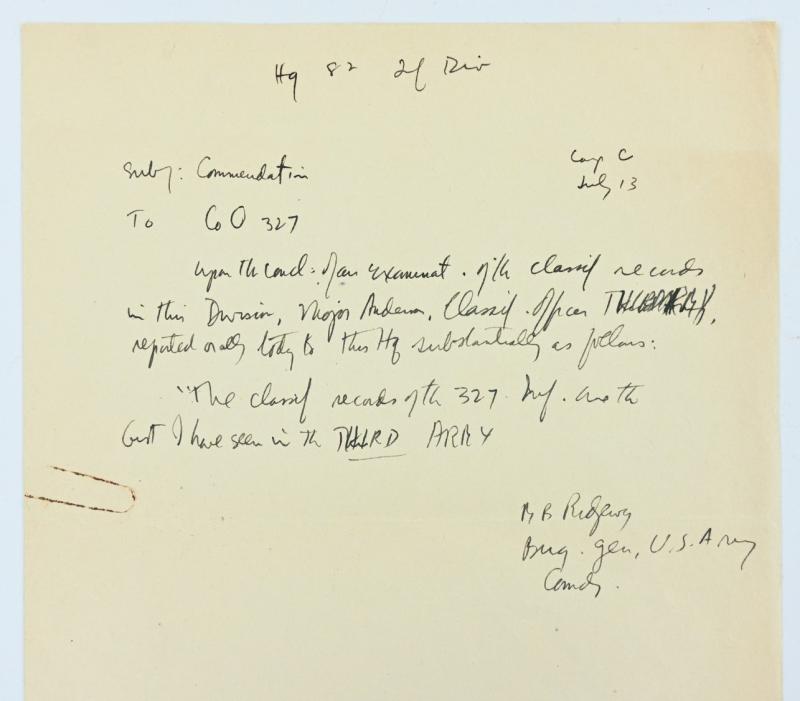 Hq 82 Inf Div
Subj: Commendation
Camp C
July 13
To CO 327
Upon th concl: of an examinat. of th classif records
in this Division, Major Anderson, Classif. Officer THIRD ARMY,
reported orally today to this Hq substantially as follows:
"The classif records of th 327 Inf. are th
best I have seen in th THIRD ARMY
M B Ridgway
Brig. Gen, U.S. Army
Comdg.